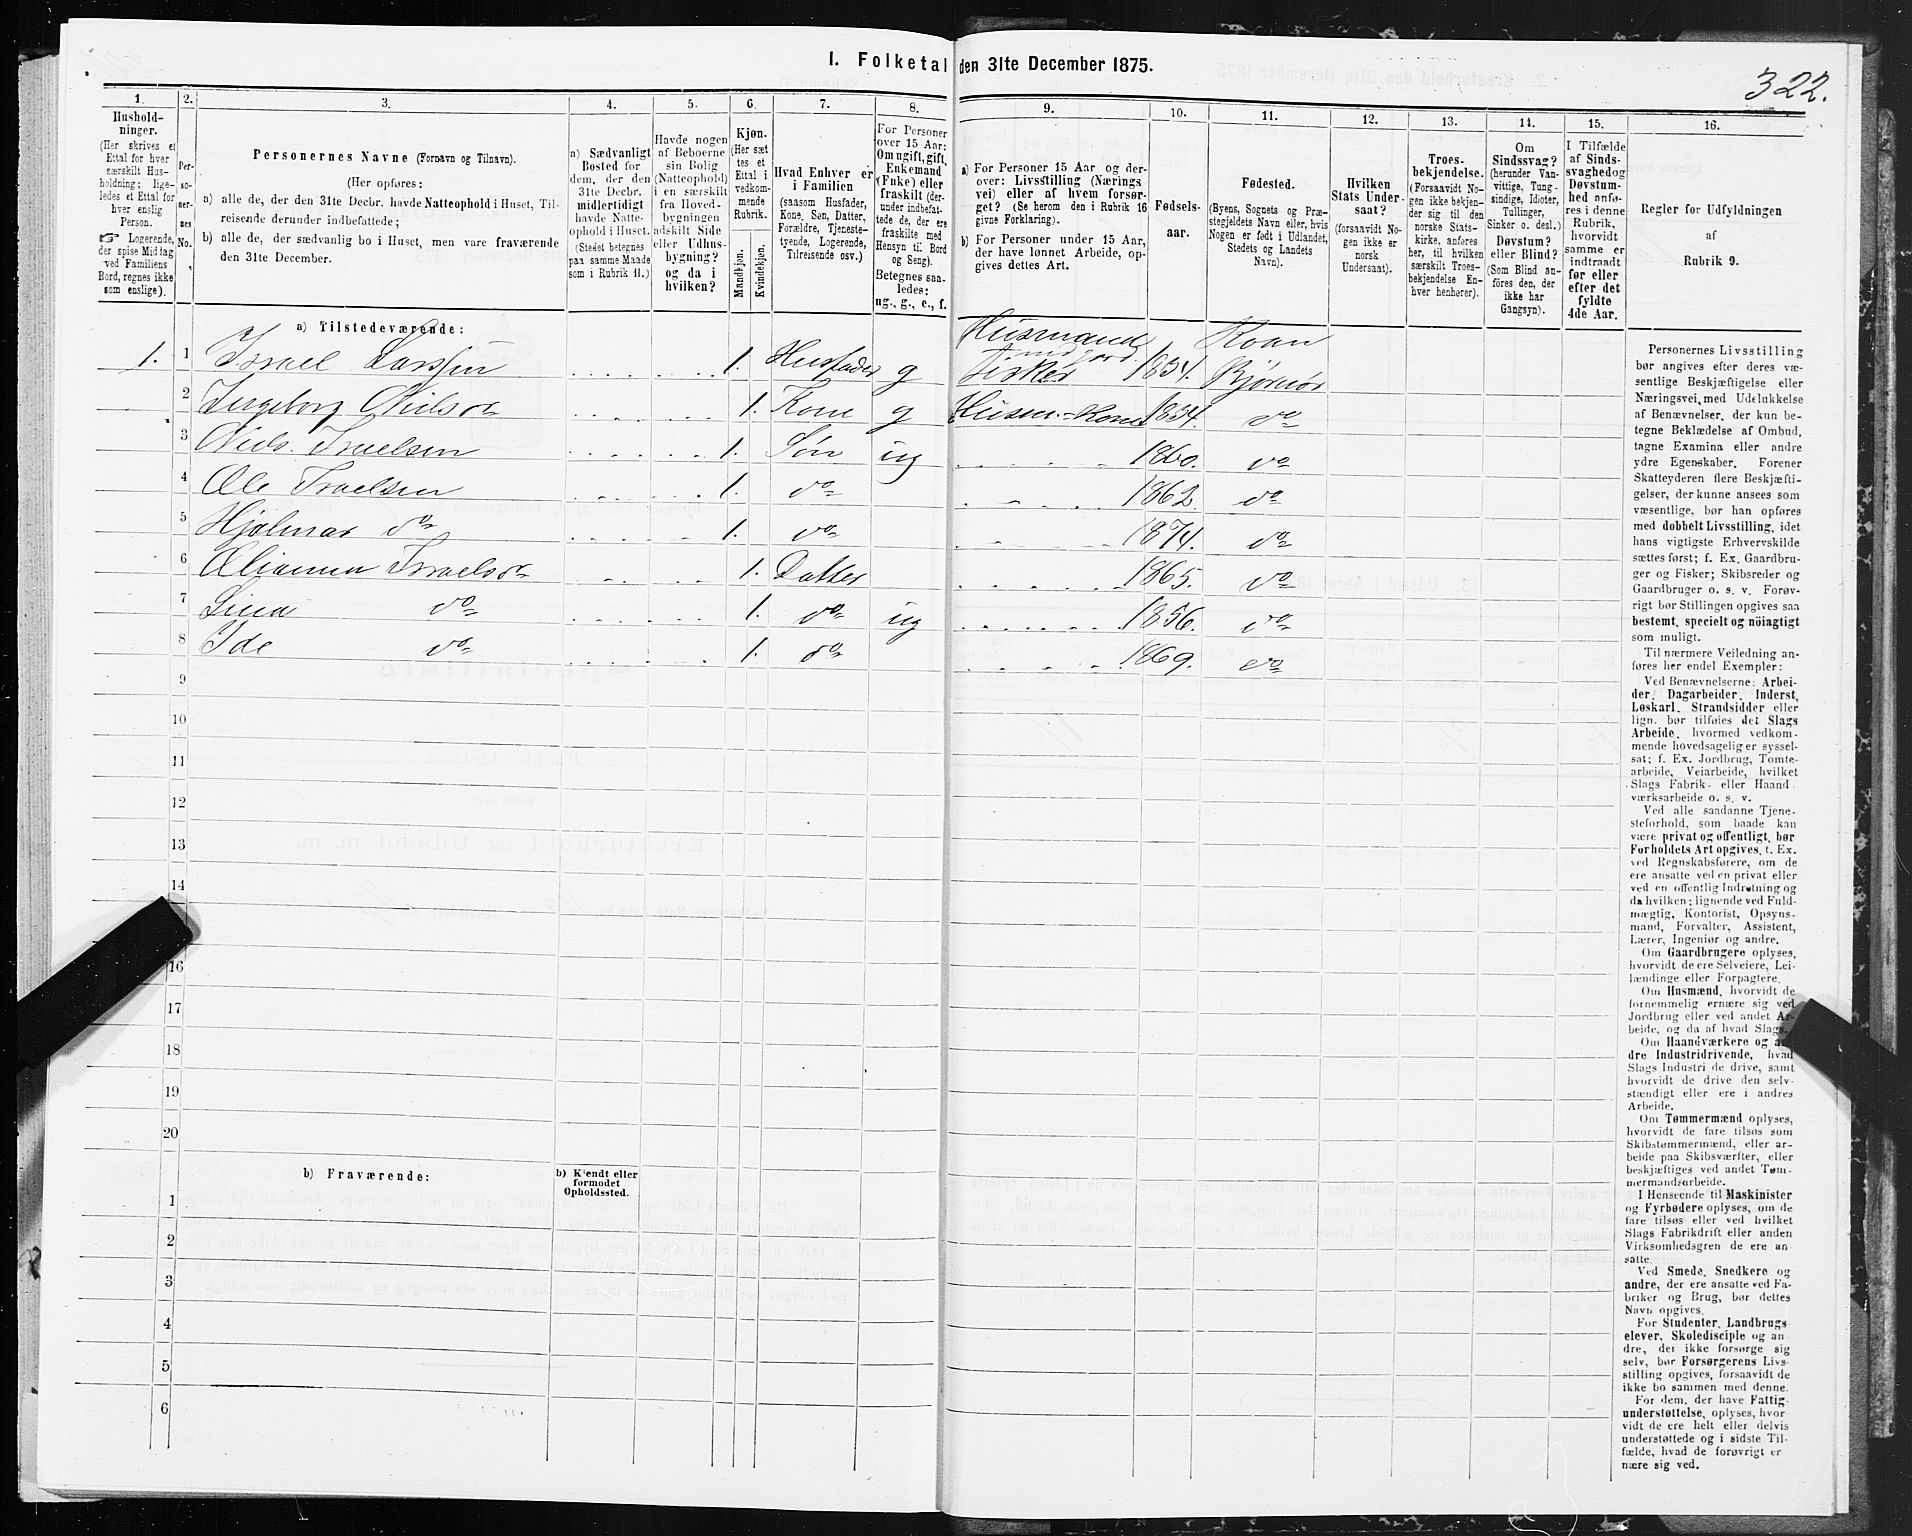 322.
1. Folketal den 31te December 1875.
1. 2. 3. 4. 5. 6. 7. 8. 9. 10. 11. 12. 13. 14. 15. 16.
Hushold-
ninger.
(Her skrives et
Ettal for hver
særskilt Hus-
holdning; lige-
ledes et Ettal for
hver enslig
Person.
☞ Logerende,
der spise Middag
ved Familiens
Bord, regnes ikke
som enslige).
Per-
so-
ner-
nes
No.
Personernes Navne (Fornavn og Tilnavn).
(Her opføres:
a) alle de, der den 31te Decbr. havde Natteophold i Huset, Til-
reisende derunder indbefattede;
b) alle de, der sædvanlig bo i Huset, men vare fraværende
den 31te December.
a) Sædvanligt
Bosted for
dem, der den
31te Decbr.
midlertidigt
havde Natte-
ophold i Huset.
(Stedet betegnes
paa samme Maade
som i Rubrik 11.)
Havde nogen
af Beboerne
sin Bolig
(Natteophold)
i en særskilt
fra Hoved-
bygningen
adskilt Side
eller Udhus-
bygning?
og da i
hvilken?
Kjøn.
(Her sæt
tes et
Ettal i
vedkom-
mende
Rubrik.
Mandkjøn.
Kvindekjøn.
Hvad Enhver er
i Familien
(saasom Husfader,
Kone, Søn, Datter,
Forældre, Tjeneste-
tyende, Logerende,
Tilreisende osv.)
For Personer
over 15 Aar:
Om ugift, gift,
Enkemand
(Enke) eller
fraskilt (der-
under indbefat-
tede de, der ere
fraskilte med
Hensyn til Bord
og Seng).
Betegnes saa-
ledes:
ug., g., e., f.
a) For Personer 15 Aar og der-
over: Livsstilling (Nærings
vei) eller af hvem forsør-
get? (Se herom den i Rubrik 16
givne Forklaring).
b) For Personer under 15 Aar,
der have lønnet Arbeide, op-
gives dettes Art.
Fødsels-
aar.
Fødested.
(Byens, Sognets og Præ-
stegjeldets Navn eller, hvis
Nogen er født i Udlandet,
Stedets og Landets
Navn).
Hvilken
Stats Under-
saat?
(forsaavidt No-
gen ikke er
norsk
Undersaat).
Troes-
bekjendelse.
(Forsaavidt No-
gen ikke bekjen-
der sig til den
norske Stats-
kirke, anføres
her, til hvilken
særskilt Troes-
bekjendelse En-
hver henhører).
Om
Sindssvag?
(herunder Van-
vittige, Tung-
sindige, Idioter,
Tullinger,
Sinker o. desl.)
Døvstum?
eller Blind?
(Som Blind an-
føres den, der
ikke har
Gangsyn).
I Tilfælde
af Sinds-
svaghed og
Døvstum-
hed anfø-
res i denne
Rubrik,
hvorvidt
samme er
indtraadt
før eller
efter det
fyldte
4de Aar.
Regler for Udfyldningen
af
Rubrik 9.
a) Tilstedeværende:
1. 1 Israel Larssen 1. Husfader g Husmand med Jord. Fisker 1834. Roan Bjørnør
2 Ingeborg Nielsdr 1. Kone g Husm.-Kone 1834. do
3 Niels Israelsen 1. Søn ug 1860. do
4 Ole Israelsen 1. do 1862. do
5 Hjalmar do 1. do 1874. do
6 Olianna Israelsdr 1. Datter 1865. do
7 Lina do 1. do ug 1856. do
8 Ide do 1. do 1869. do
9
10
11
12
13
14
16
17
18
19
20
b) Fraværende:
b) Kjendt eller
formodet
Opholdssted.
1
2
3
4
5
6
Personernes Livsstilling
bør angives efter deres væ-
sentlige Beskjæftigelse eller
Næringsvei med Udelukkelse
af Benævnelser, der kun be-
tegne Beklædelse af Ombud,
tagne Examina eller andre
ydre Egenskaber. Forener
Skatteyderen flere Beskjæfti-
gelser, der kunne ansees som
væsentlige, bør han opføres
med dobbelt Livsstilling, idet
hans vigtigste Erhvervskilde
sættes først; f. Ex. Gaardbru-
ger og Fisker; Skibsreder og
Gaardbruger o. s. v. Forøv-
rigt bør Stillingen opgives saa
bestemt, specielt og nöiagtigt
som muligt.
Til nærmere Veiledning an-
føres her endel Exempler:
Ved Benævnelserne: Arbei-
der, Dagarbeider, Inderst,
Løskarl, Strandsidder eller
lign. bør tilføies det Slags
Arbeide, hvormed vedkom-
mende hovedsagelig er syssel-
sat; f. Ex. Jordbrug, Tomte-
arbeide, Veiarbeide, hvilket
Slags Fabrik- eller Haand
værksarbeide o. s. v.
Ved alle saadanne Tjene-
steforhold, som baade kan
være privat og offentligt, bør
Forholdets Art opgives, f. Ex.
ved Regnskabsførere, om de
ere ansatte ved en privat eller
ved en offentlig Indretning og
da hvilken; lignende ved Fuld-
mægtig, Kontorist, Opsyns-
mand, Forvalter, Assistent,
Lærer, Ingeniør og andre.
Om Gaardbrugere oplyses,
hvorvidt de ere Selveiere, Lei-
lændinge eller Forpagtere.
Om Husmænd, hvorvidt de
fornemmelig ernære sig ved
Jordbrug eller ved andet Ar-
beide, og da af hvad Slags.
Om Haandværkere og an-
dre Industridrivende, hvad
Slags Industri de drive, samt
hvorvidt de drive den selv-
stændigt eller ere i andres
Arbeide.
Om Tømmermænd oplyses,
hvorvidt de fare tilsøs som
Skibstømmermænd, eller ar-
beide paa Skibsværfter, eller
beskjæftiges ved andet Tøm-
mermandsarbeide.
I Henseende til Maskinister
og Fyrbødere oplyses, om de
fare tilsøs eller ved hvilket
Slags Fabrikdrift eller anden
Virksomhedsgren de ere an-
satte.
Ved Smede, Snedkere og
andre, der ere ansatte ved Fa-
briker og Brug, bør dettes
Navn opgives.
For Studenter, Landbrugs
elever, Skoledisciple og an
dre, der ikke forsørge sig
selv, bør Forsørgerens Livs-
stilling opgives, forsaavidt de
ikke bo sammen med denne.
For dem, der have Fattig-
understøttelse, oplyses, hvor-
vidt de ere helt eller delvis
understøttede og i sidste Til-
fælde, hvad de forøvrigt er
nære sig ved.